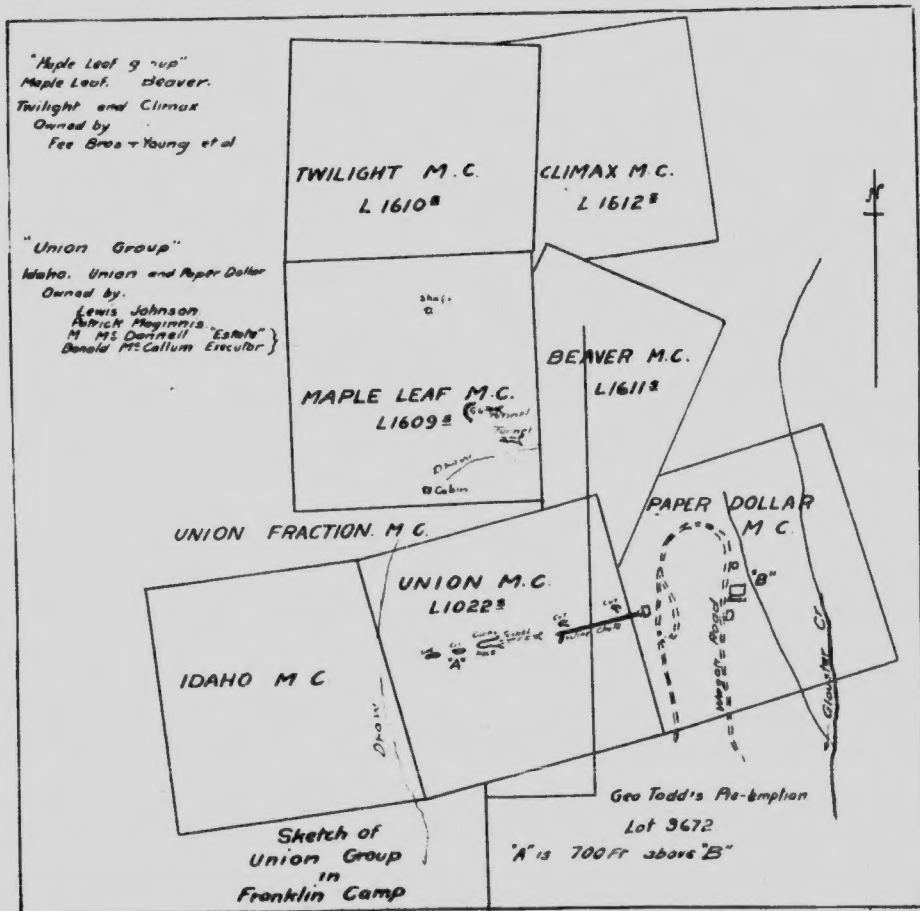 "Maple Leaf group"
Maple Leaf. Beaver.
Twilight and Climax
Owned by
Fee Bros + Young et al
"Union Group"
Idaho. Union and Paper Dollar
Owned by.
Lewis Johnson
Patrick Maginnis
M McDonnell "Estate" }
Donald McCallum Executor }
TWILIGHT M.C.
L 1610s
CLIMAX M.C.
L 1612s
N
Shaft
MAPLE LEAF M.C.
L1609s
Tunnel
Tunnel
Draw
Cabin
BEAVER M.C.
L1611s
UNION FRACTION. M C.
PAPER DOLLAR
M C.
"B"
UNION M.C.
L1022s
Cut
"A"
IDAHO M C
Draw
Wagon Road
Glouster Cr
Geo Todd's Pre-emption
Lot 3672
"A" is 700 Ft above "B"
Sketch of
Union Group
in
Franklin Camp